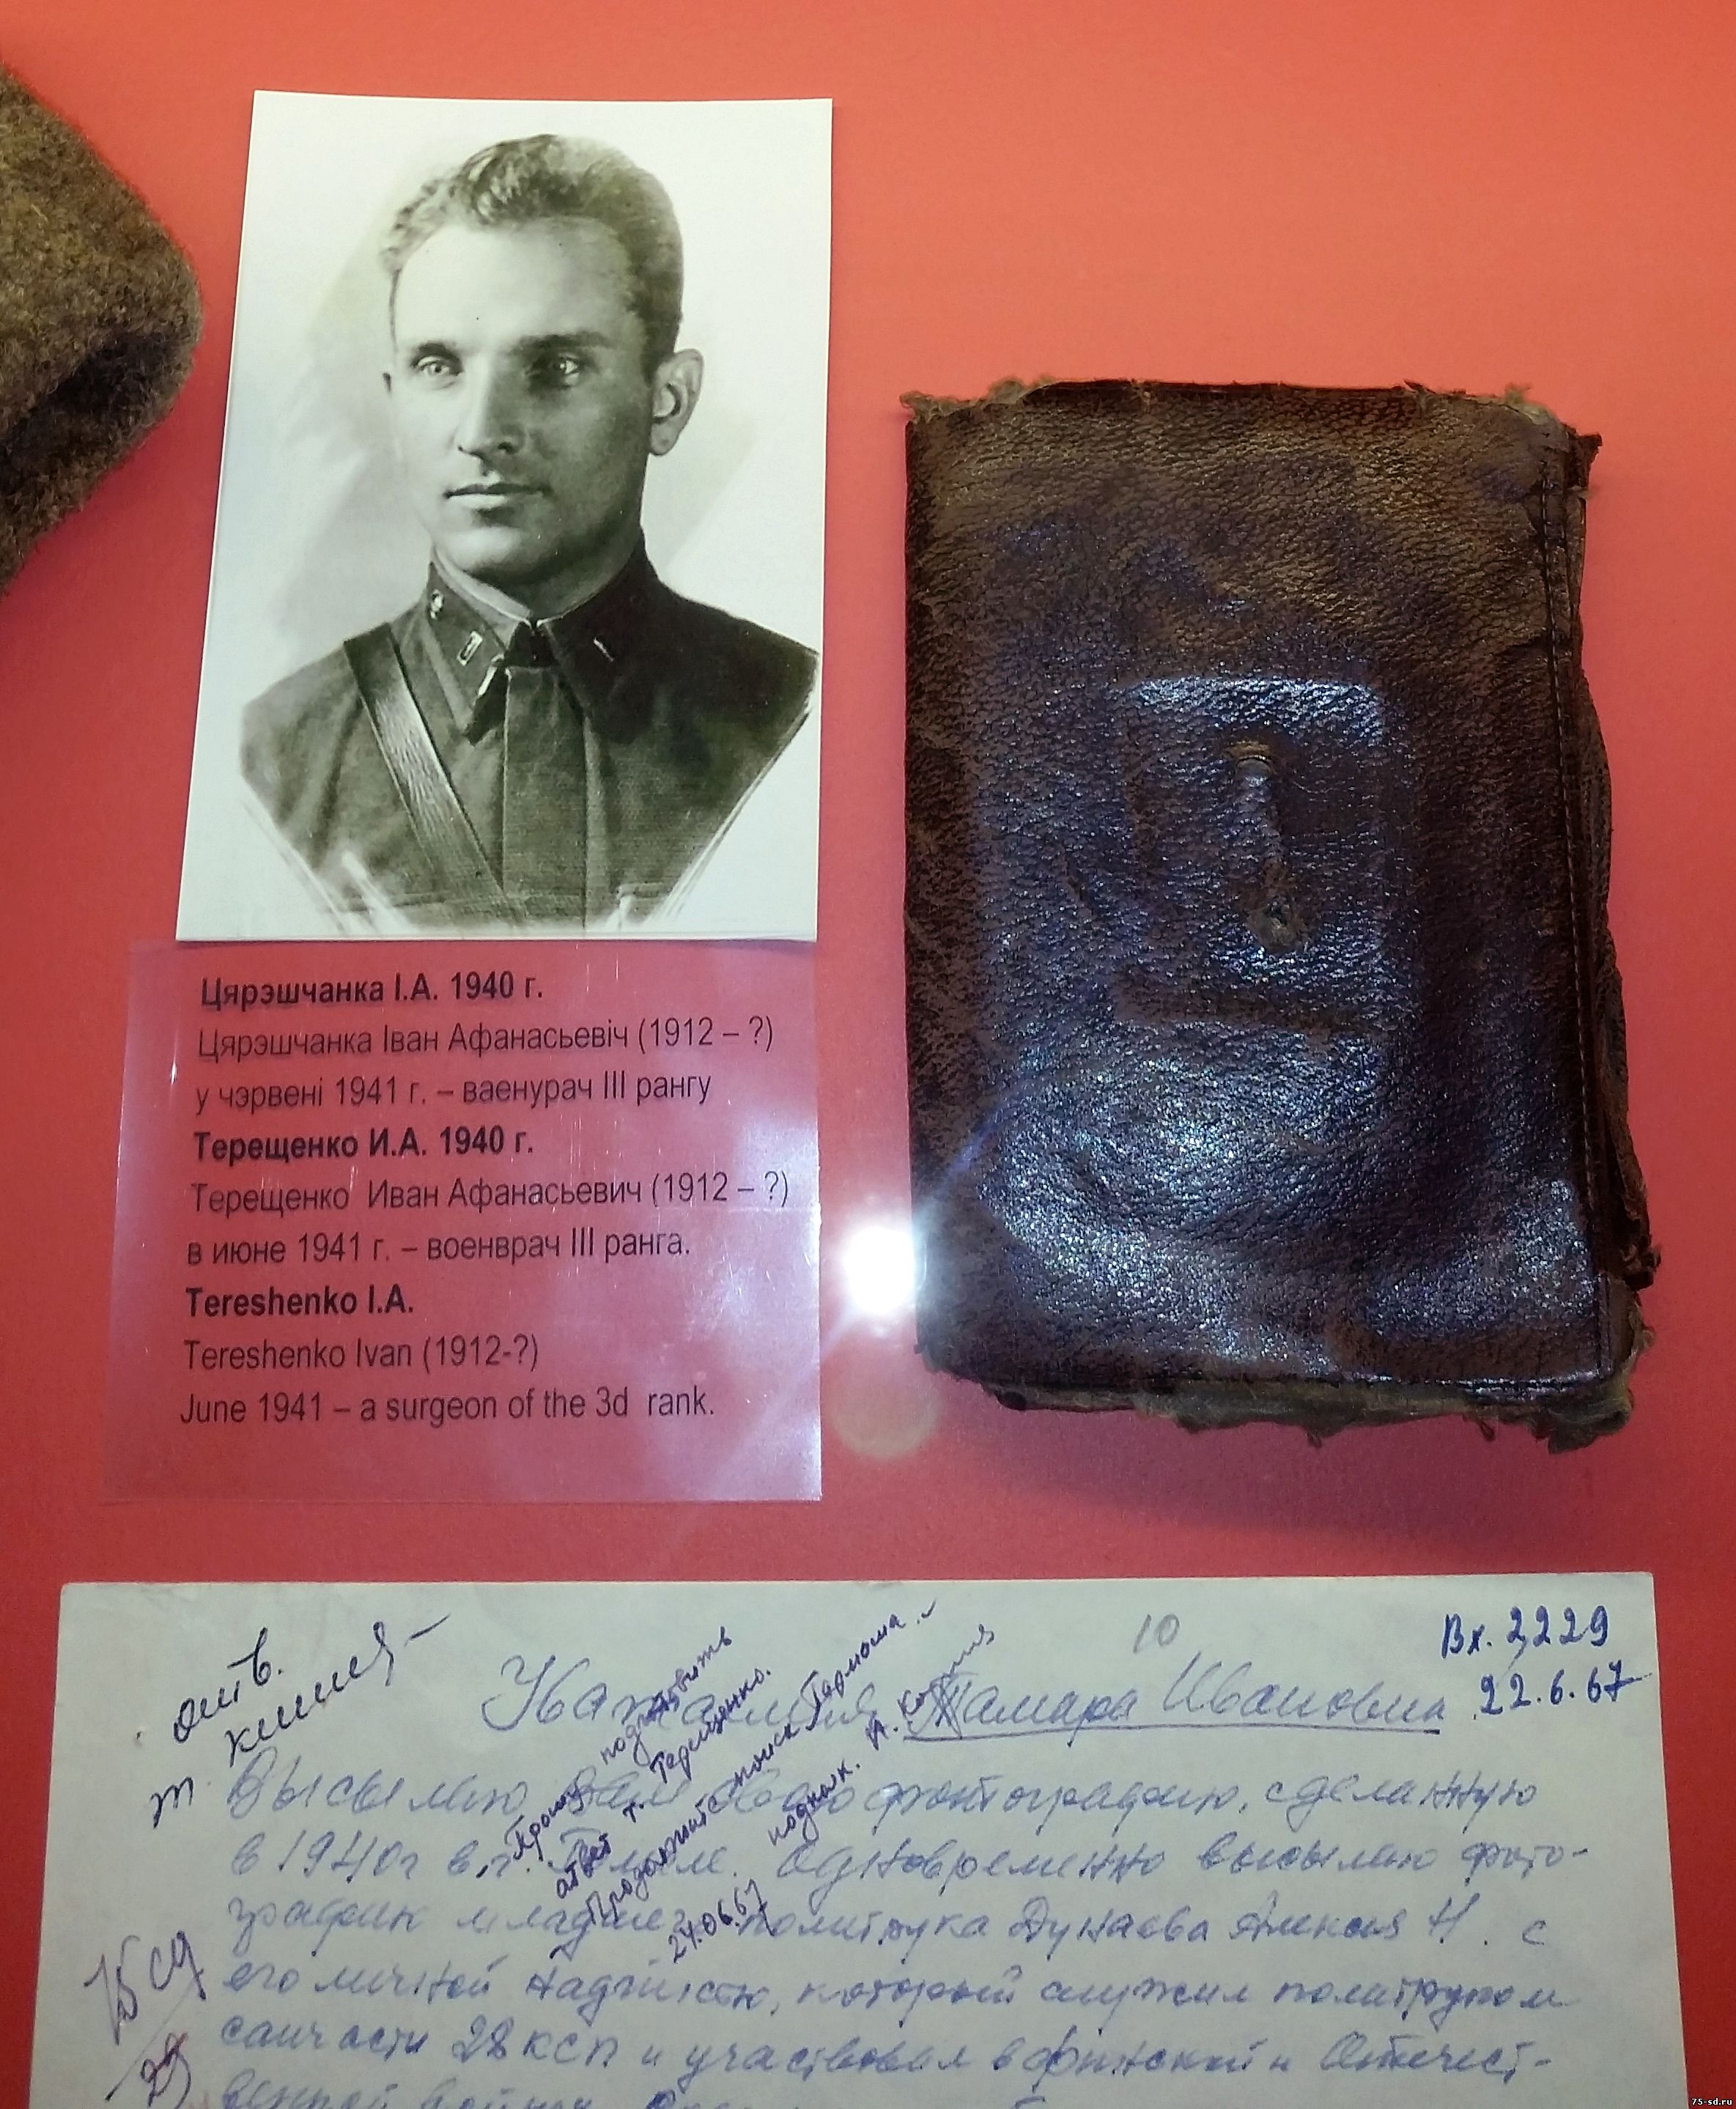 Цярэшчанка І.А. 1940 г.
Цярэшчанка Іван Афанасьевіч (1912 – ?)
у чэрвені 1941 г. – ваенурач III рангу
Терещенко И.А. 1940 г.
Терещенко Иван Афанасьевич (1912 – ?)
в июне 1941 г. – военврач III ранга.
Tereshenko I.A.
Tereshenko Ivan (1912-?)
June 1941 – a surgeon of the 3d rank.
10
Вх. 2229
22.6.67
отв.
Тамара Ивановна
Прошу подготовить
ответ т. Терещенко.
Продолжайте поиск Гармаша.
24.06.67 подполк.
Высылаю Вам свою фотографию, сделанную
в 1940г в г. Гомеле. Одновременно высылаю фото-
графию младшего политрука Дунаева Алексея Н. с
его личной надписью, который служил политруком
санчасти 28 ксп и участвовал в финской и Отечест-
венной войнах.
75 сд
75-sd.ru